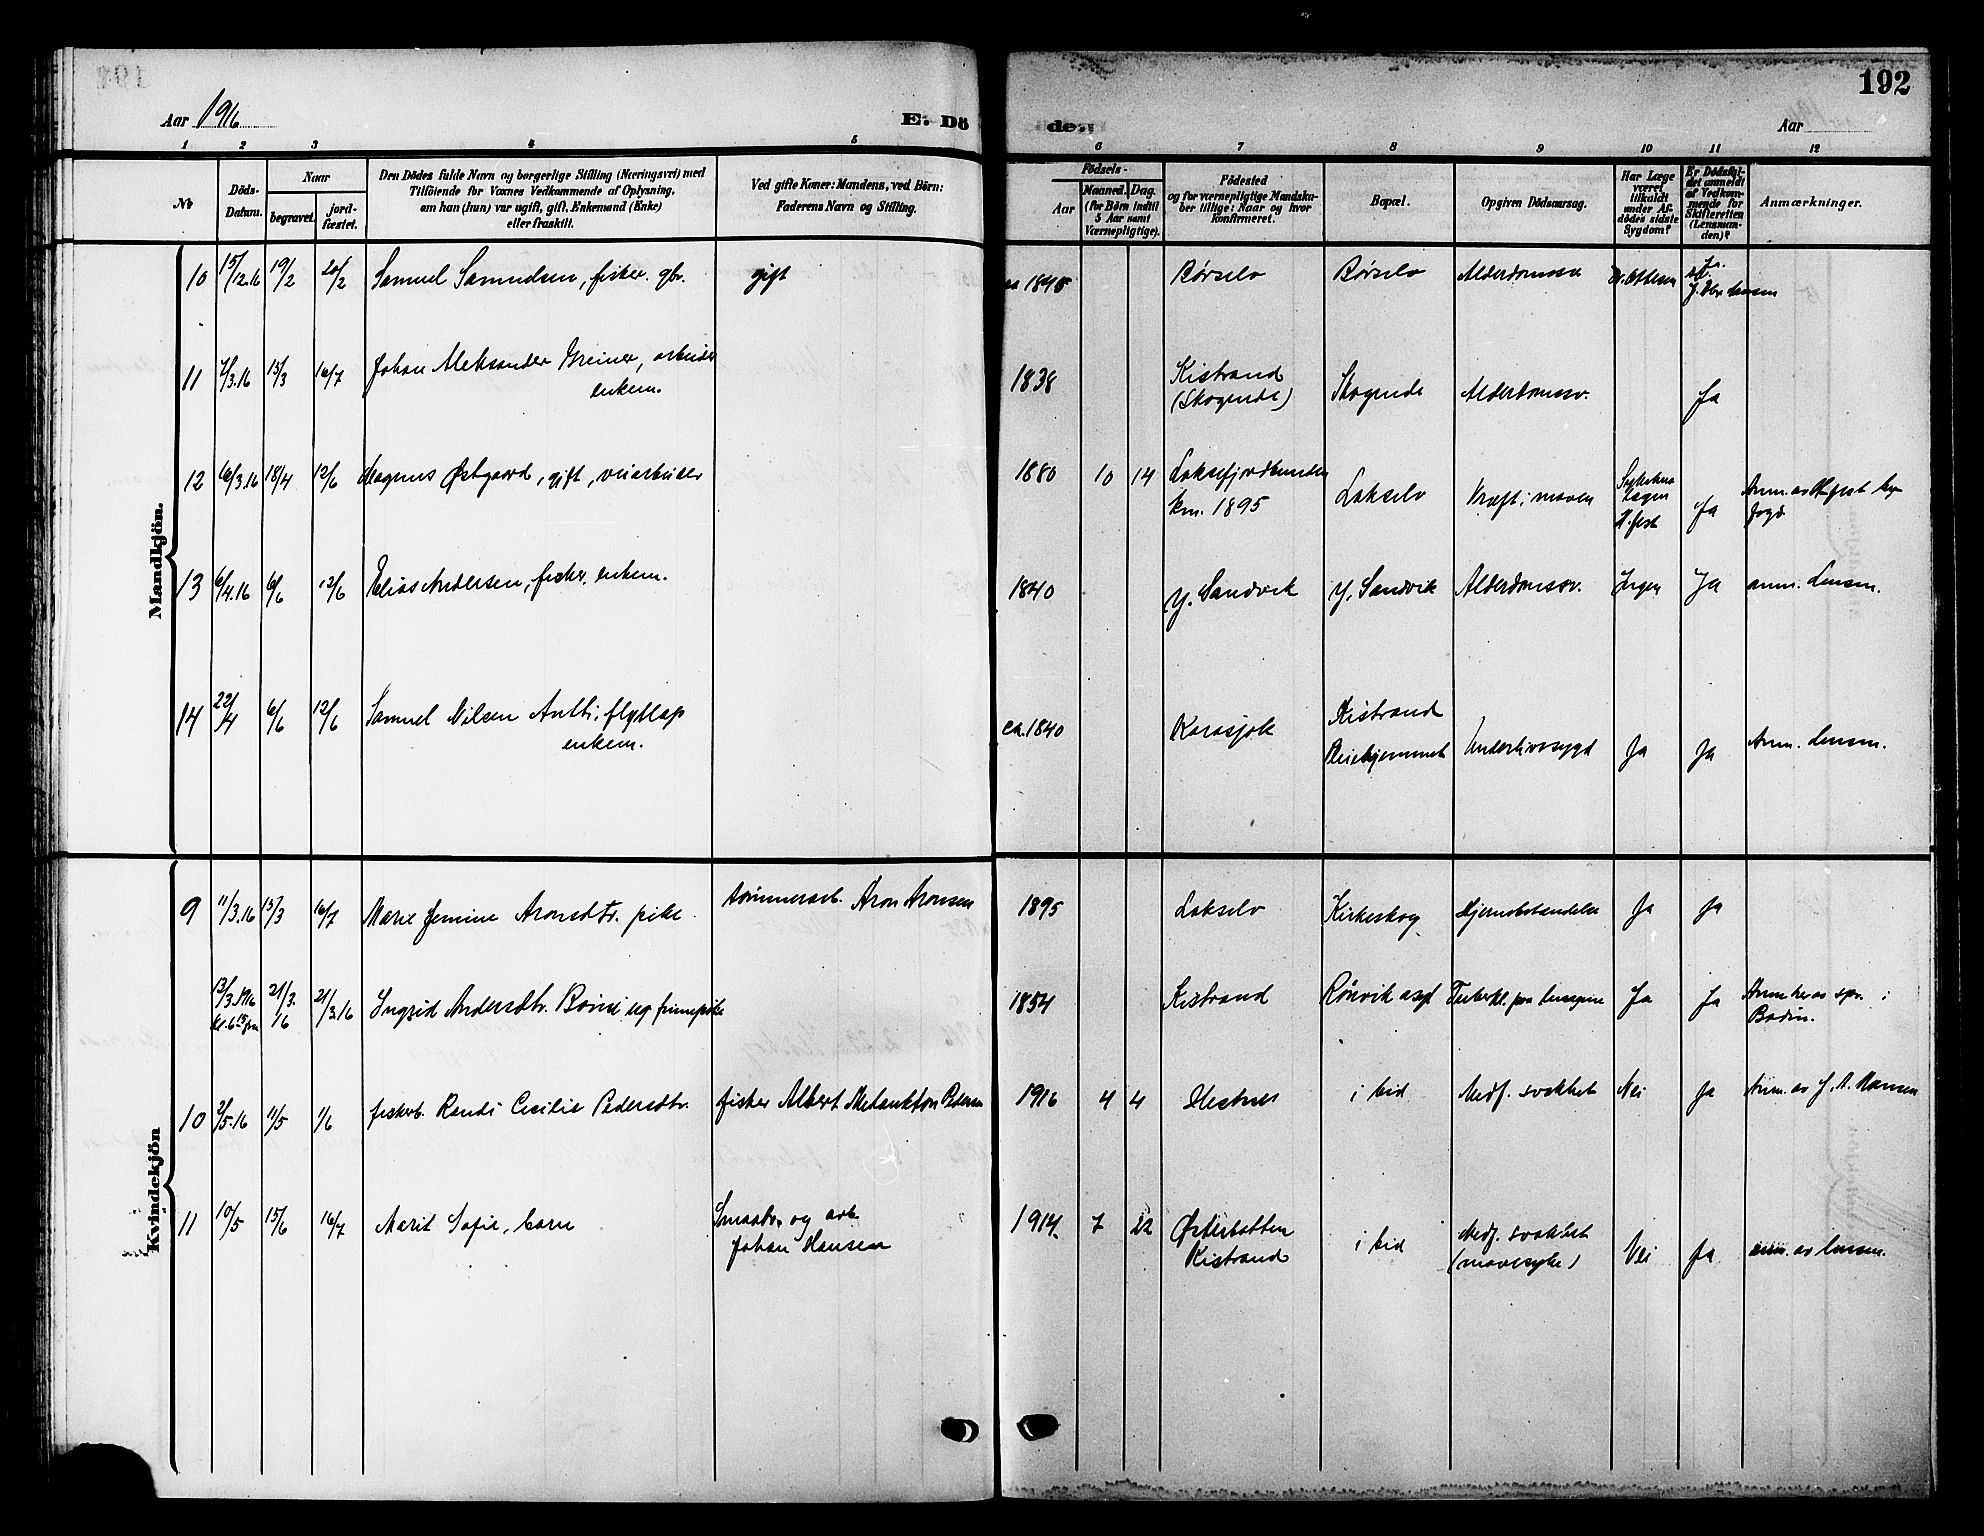 192
Aar 1916
E. Dö
den
Aar
1 2 3 4 5 6 7 8 9 10 11 12
No
Döds-
Datum.
Naar
begravet.
jord-
fæstet.
Den Dödes fulde Navn og borgerlige Stilling (Næringsvei) med
Tilföiende for Voxnes Vedkommende af Oplysning,
om han (hun) var ugift, gift, Enkemand (Enke)
eller fraskilt.
Ved gifte Koner: Mandens, ved Börn:
Faderens Navn og Stilling.
Födsels-
Aar
Maaned.
Dag.
(for Börn indtil
5 Aar samt
Værnepligtige).
Födested
og for værnepligtige Mandska-
ber tillige: Naar og hvor
konfirmeret.
Bopæl.
Opgiven Dödsaarsag.
Har Læge
været
tilkaldt
under Af-
dödes sidste
Sygdom?
Er Dödsfal-
det anmeldt
af Vedkom-
mende for
Skifteretten
(Lensman-
den)?
Anmærkninger.
Mandkjön.
10 15/12.16 19/2 20/2 Samuel Samuelsen, fisker. gbr. gift 1845 Börselv Börselv Alderdomssv. Ja
11 7/3.16 15/3 16/7 Johan Aleksander Greiner, arbeider
enkem.
1838 Kistrand
(Skogende) Skogende Alderdomssv. Ja
12 16/3.16 18/4 12/6 Magnus Østgaard, gift, veiarbeider
1880 10 14 Laksefjordbunden
km. 1895 Lakselv Kræft i maven Ja
13 6/4.16 6/6 12/6 Elias Andersen, fisker, enkem.
1840 Y. Sandvik Y. Sandvik Alderdomssv. Ingen Ja anm. Lensm.
14 22/4 6/6 12/6 Samuel Nilsen Antti, flytlap
enkem.
ca. 1840 Karasjok Kistrand
Pleiehjemmet Underlivssygd Ja Ja Anm. lensm.
Kvindekjön
9 11/3.16 13/3 16/7 Marie Jemine Aronsdtr. pike tømmerarb. Aron Aronsen
1895 Lakselv Kirkeskog Hjernebetændelse Ja Ja
13/3.1916
21/3.
16 21/3.16 Ingrid Andersdtr. ug finnepike
1854 Kistrand Rönvik asyl Tuberkl. paa lungene Ja Ja
Bodin.
10 2/5.16 11/5 1/6 fiskerb. Randi Cecilie Pedersdtr. fisker Albert Melankton Pedersen
1916 4 4 Hestnes i bid Medf. svakhet Nei Ja Anm. av J. A. Hansen
11 10/5 15/6 16/7 Marit Sofie, barn Smaabr. og arb
Johan Hansen
1914 7 22 Østerbotten
Kistrand i bid Medf. svakhet
(mavesyke) Nei Ja anm. av lensm.